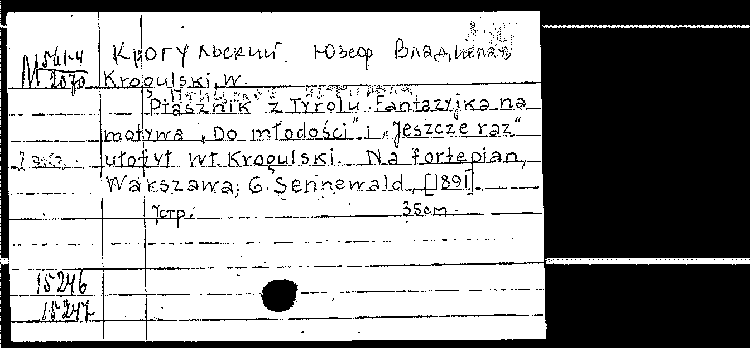 М 561-4
2070
Крогульский Юзеф Владислав
Krogulski, W.
"Ptasznik" z Tyrolu. Fantazyjka na
motywa „Do młodości" i „Jeszcze raz"
2 экз.
ułożył Wł. Krogulski. Na fortepian,
Wakszawa; G. Sennewald, [1891].
7стр. 35cm.
15246
15247